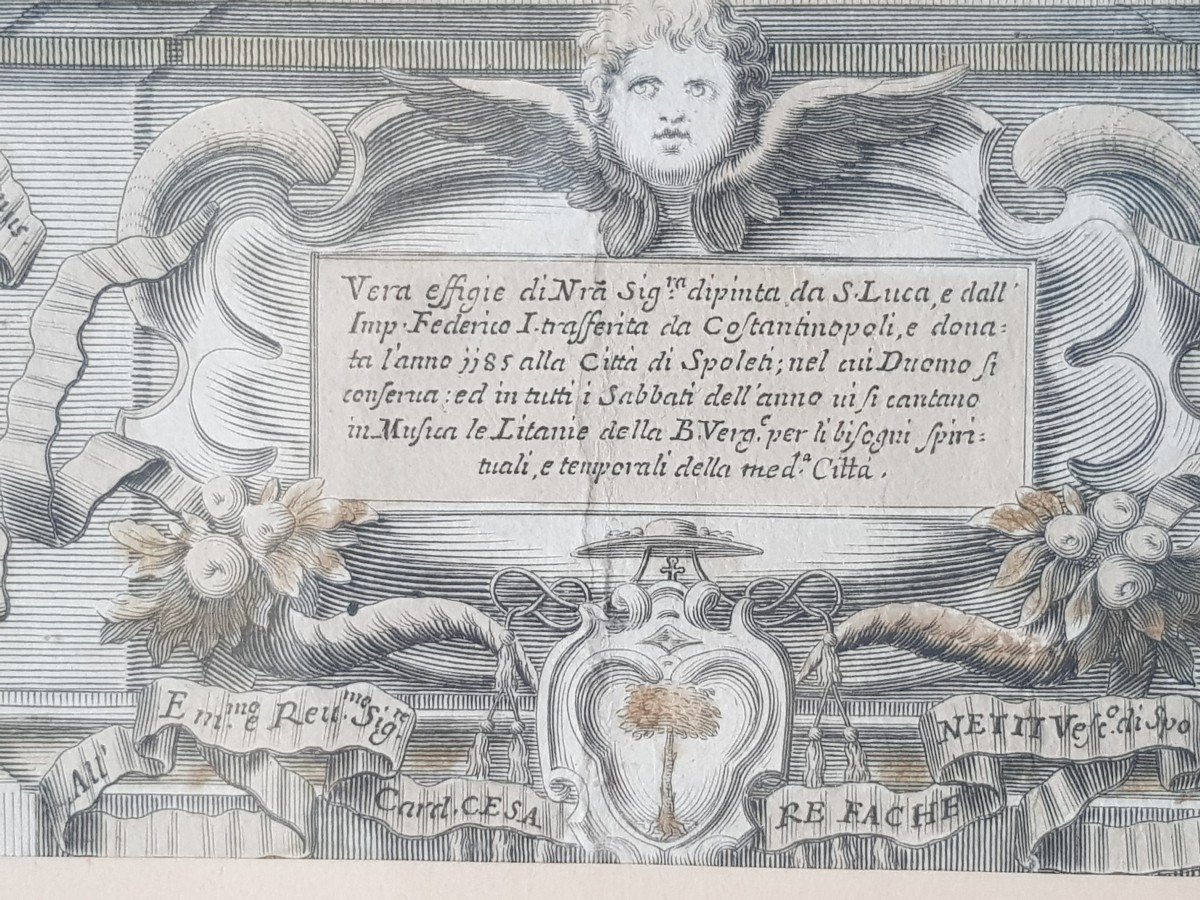 Vera effigie di Nrā Sig.ra dipinta da S. Luca, e dall'
Imp. Federico I. traſferita da Coſtantinopoli, e dona=
ta l'anno 1185 alla Città di Spoleti; nel cui Duomo ſi
conſerua: ed in tutti i Sabbati dell'anno ui ſi cantano
in Muſica le Litanie della B. Verg.e per li biſogni ſpiri=
tuali, e temporali della med.a Città.
All' Em.mo e Reu.mo Sig.re
Card. CESA RE FACHE
NETTI Veſc.o di Spo